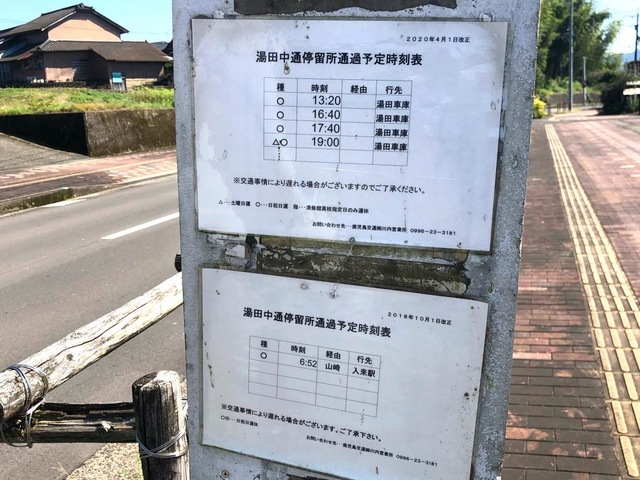 2020年4月1日改正
湯田中通停留所通過予定時刻表
種 時刻 経由 行先
○ 13:20 湯田車庫
○ 16:40 湯田車庫
○ 17:40 湯田車庫
△○ 19:00 湯田車庫
※交通事情により遅れる場合がございますのでご了承ください。
△・・・土曜日運休 ○・・・日祝日運休 指・・・清修館高校指定日のみ運休
お問い合わせ先・・・鹿児島交通㈱川内営業所 0996-23-3181
2018年10月1日改正
湯田中通停留所通過予定時刻表
種 時刻 経由 行先
○ 6:52 山崎 入来駅
※交通事情により遅れる場合がございます。ご了承下さい。
○印・・・日祝日運休
お問い合わせ先・・・鹿児島交通㈱川内営業所 0996-23-3181